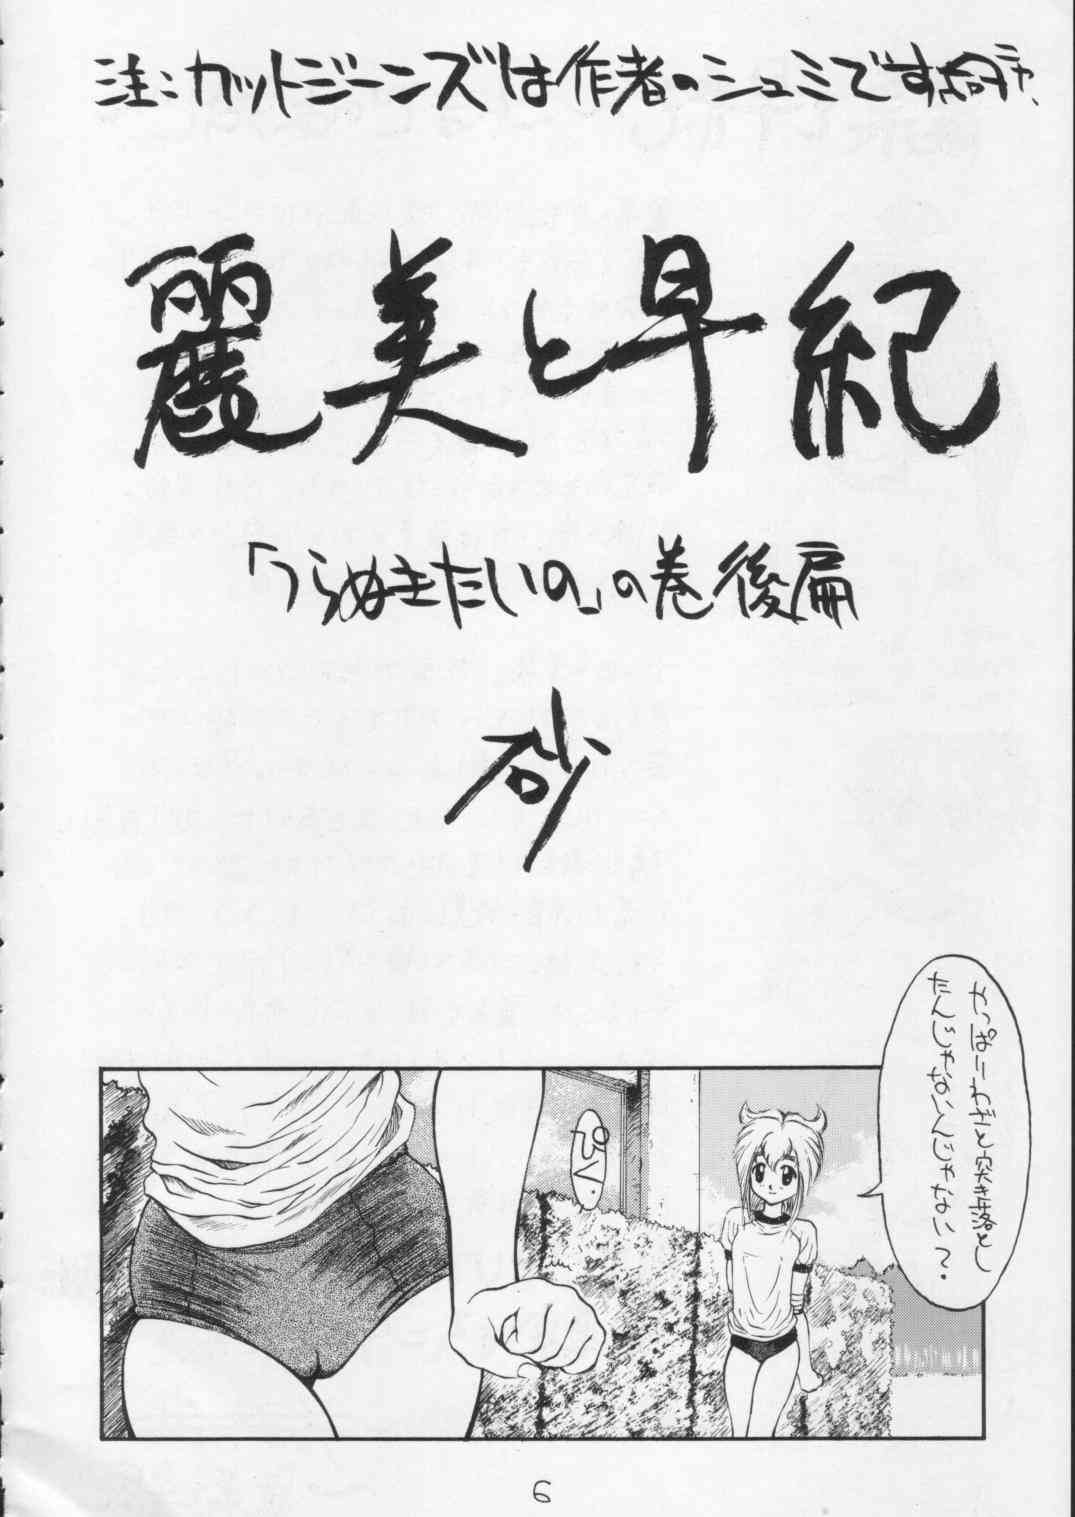 注:カットジーンズは作者のシュミです
麗美と早紀
「つらぬきたいの」の巻後扁
砂
やっぱりわざと突き落とし
たんじゃないんじゃない？
6